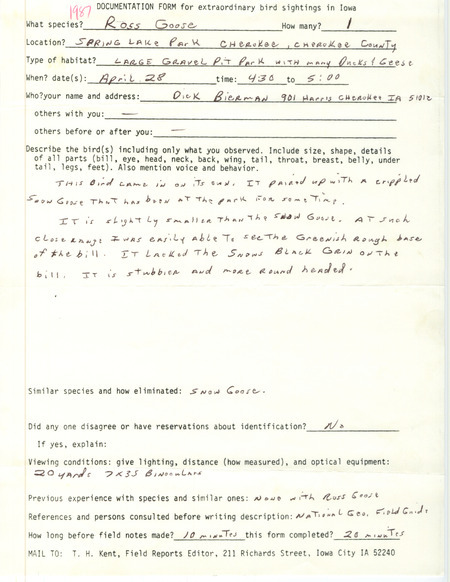 1987
DOCUMENTATION FORM for extraordinary bird sightings in Iowa
What species? Ross Goose How many? 1
Location? SPRING LAKE PARK CHEROKEE, CHEROKEE COUNTY
Type of habitat? LARGE GRAVEL PIT PARK WITH MANY DUCKS & GEESE
When? date(s): April 28 time: 430 to 5:00
Who? your name and address: DICK BIERMAN 901 HARRIS CHEROKEE IA 51012
others with you: —
others before or after you: —
Describe the bird(s) including only what you observed. Include size, shape, details
of all parts (bill, eye, head, neck, back, wing, tail, throat, breast, belly, under
tail, legs, feet). Also mention voice and behavior.
THIS BIRD CAME IN ON ITS OWN. IT PAIRED UP WITH A CRIPPLED
SNOW GOOSE THAT HAS BEEN AT THE PARK FOR SOME TIME.
IT IS SLIGHTLY SMALLER THAN THE SNOW GOOSE. AT SUCH
CLOSE RANGE I WAS EASILY ABLE TO SEE THE GREENISH ROUGH BASE
OF THE BILL. IT LACKED THE SNOWS BLACK GRIN ON THE
BILL. IT IS STUBBIER AND MORE ROUND HEADED.
Similar species and how eliminated: SNOW GOOSE.
Did any one disagree or have reservations about identification? No
If yes, explain:
Viewing conditions: give lighting, distance (how measured), and optical equipment:
20 YARDS 7X35 BINOCULARS
Previous experience with species and similar ones: NONE WITH ROSS GOOSE
References and persons consulted before writing description: NATIONAL GEO. FIELD GUIDE
How long before field notes made? 10 MINUTES this form completed? 20 MINUTES
MAIL TO: T. H. Kent, Field Reports Editor, 211 Richards Street, Iowa City IA 52240